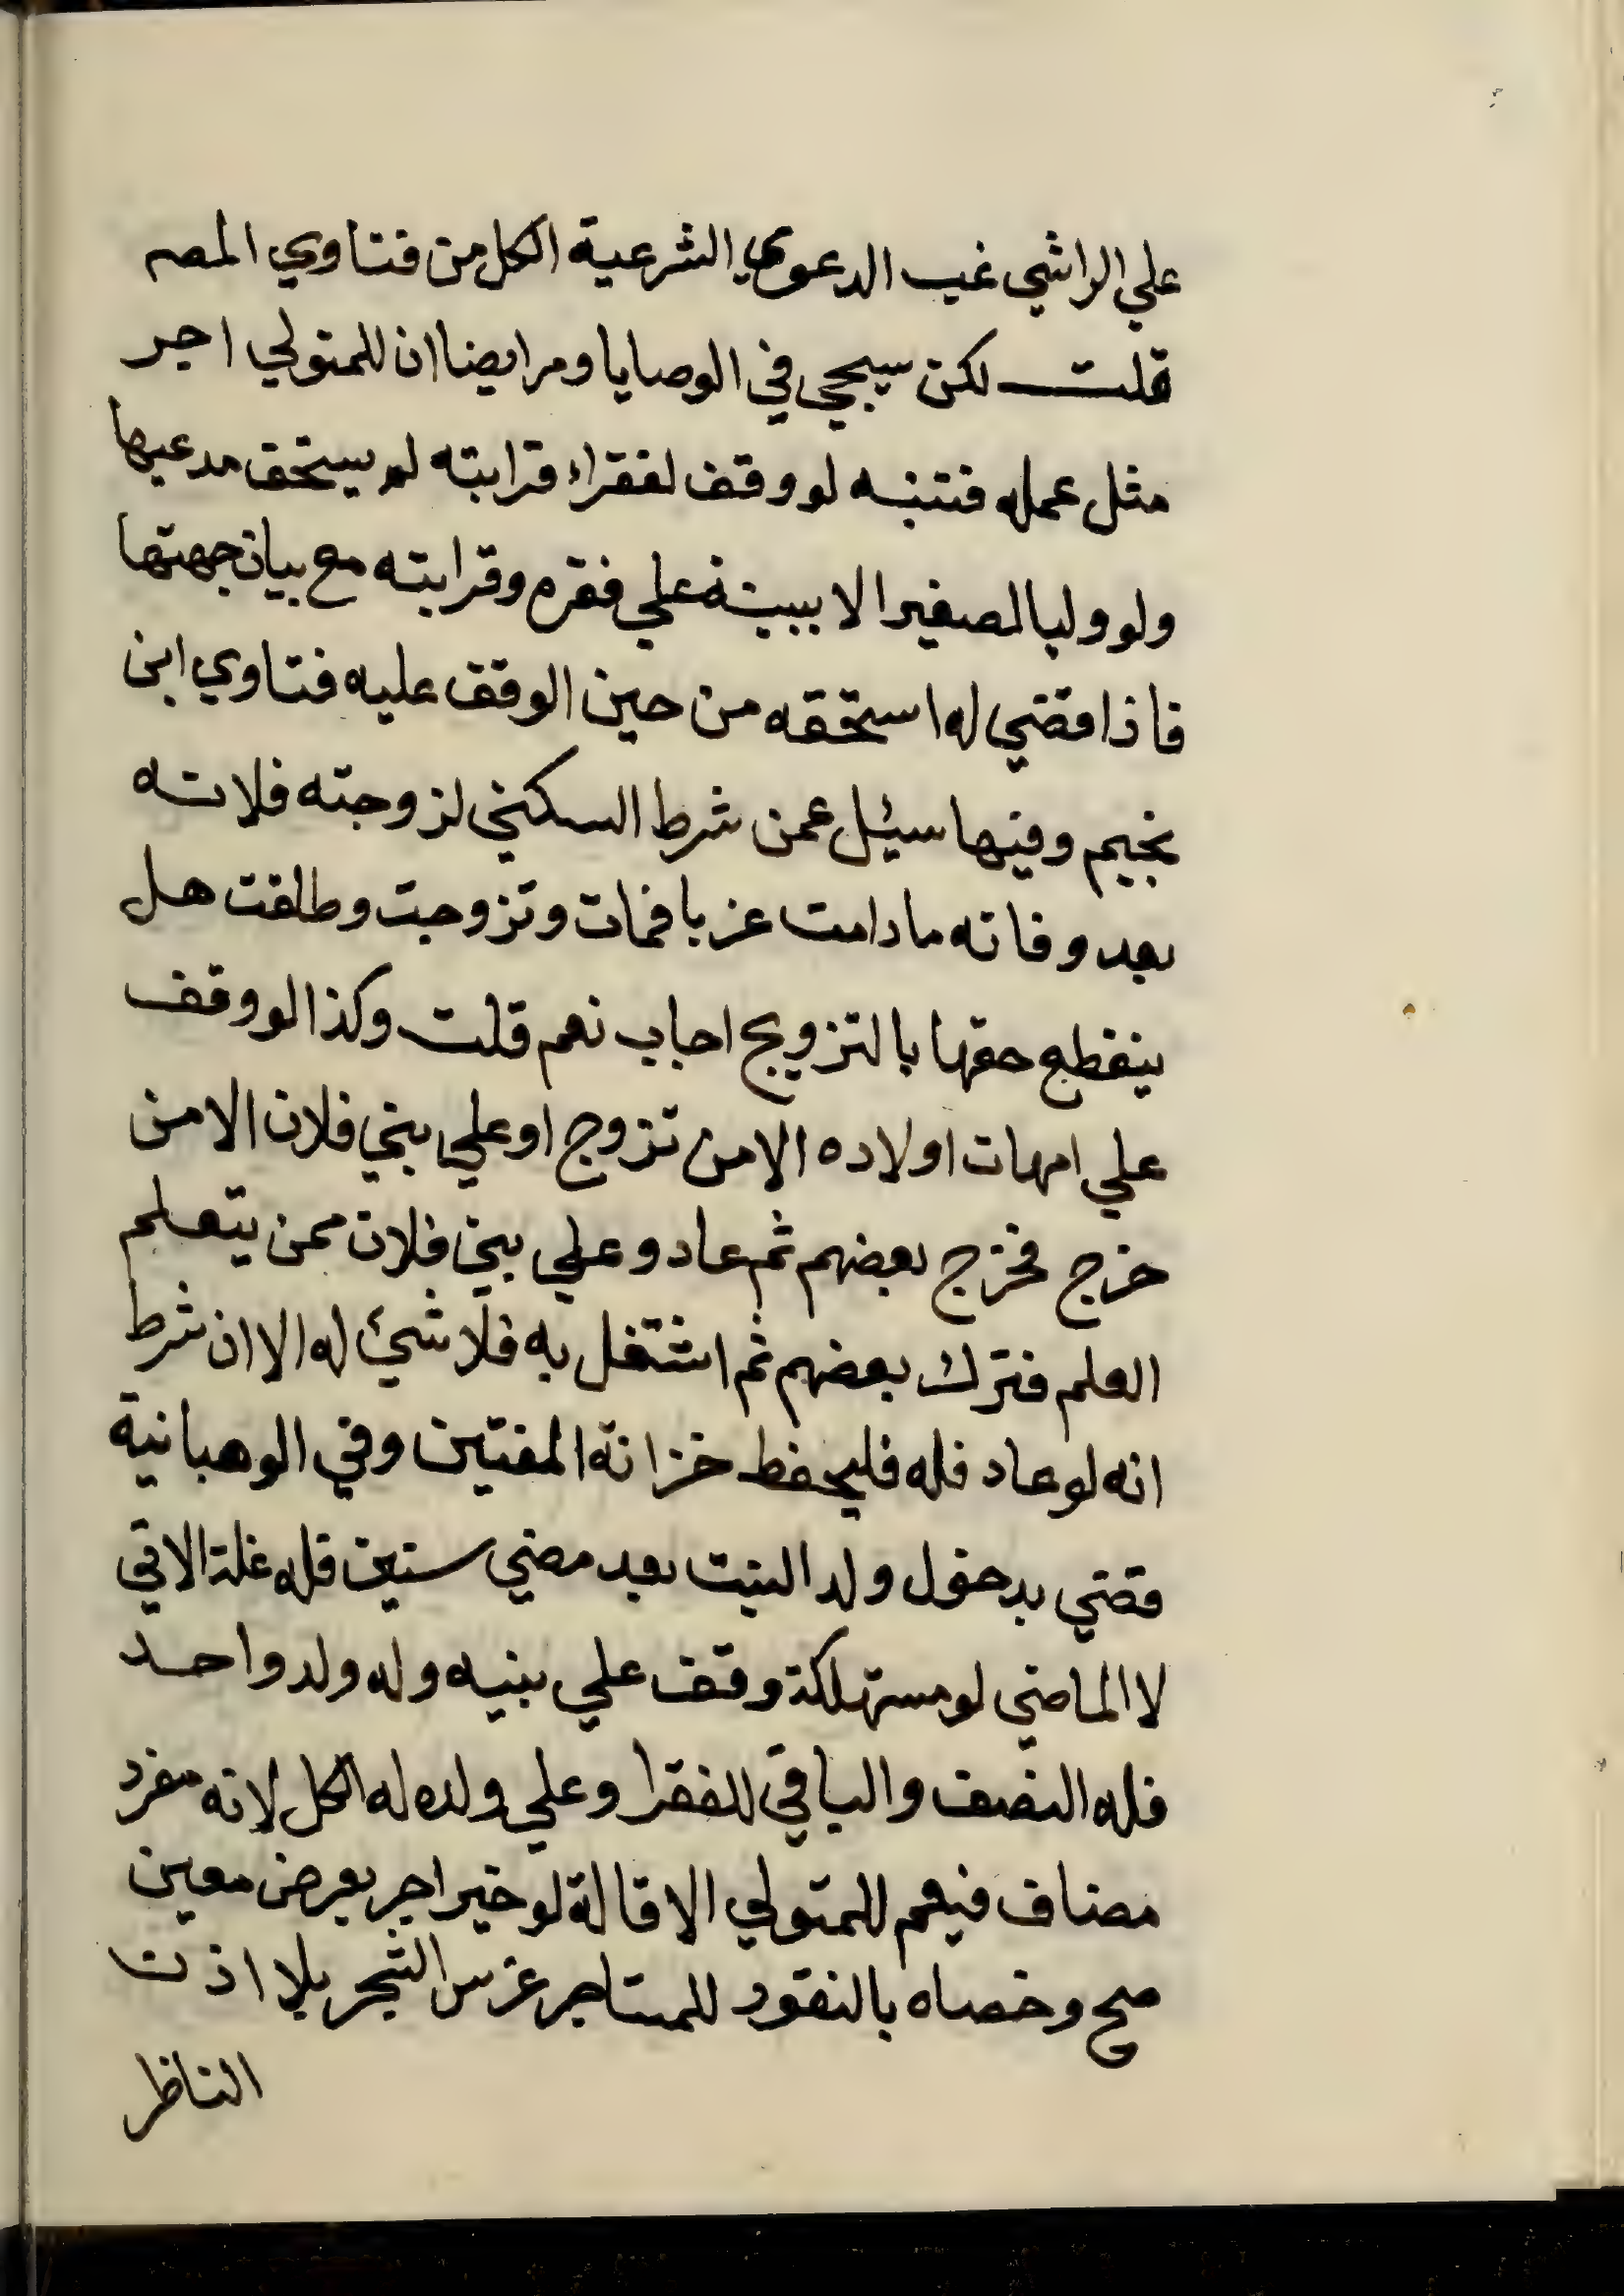 علي الراشي غب الدعوي الشرعية الكل من فتاوي المصـ
قلت لكن سيجي في الوصايا ومر ايضا ان للمتولي اجر
مثل عمله فتنبه لو وقف لفقراء قرابته لم يستحق مدعيها
ولو وليا لصغير الا ببينة علي فقره وقرابته مع بيان جهتها
فاذا قضي له استحقه من حين الوقف عليه فتاوي ابن
نجيم وفيها سيئل عمن شرط السكني لزوجته فلانه
بعد وفاته ما دامت عزبا فمات وتزوجت وطلقت هل
ينقطع حقها بالتزويج اجاب نعم قلت وكذا لو وقف
علي امهات اولاده الا من تزوج او علي بني فلان الا من
خرج فخرج بعضهم ثم عاد وعلي بني فلان ممن يتعلم
العلم فترك بعضهم ثم اشتغل به فلا شيئ له الا ان شرط
انه لو عاد فله فليحفظ خزانة المفتين وفي الوهبانية
قضي بدخول ولد البنت بعد مضي سنين فله غلة الاتي
لا الماضي لو مستهلكة وقف علي بنيه وله ولد واحد
فله النصف والباقي للفقرا وعلي ولده له الكل لانه مفرد
مضاف فيعم للمتولي الاقالة لو خير اجر بعرض معين
صح وخصاه بالنقود للمستاجر غرس الشجر بلا اذن
الناظر